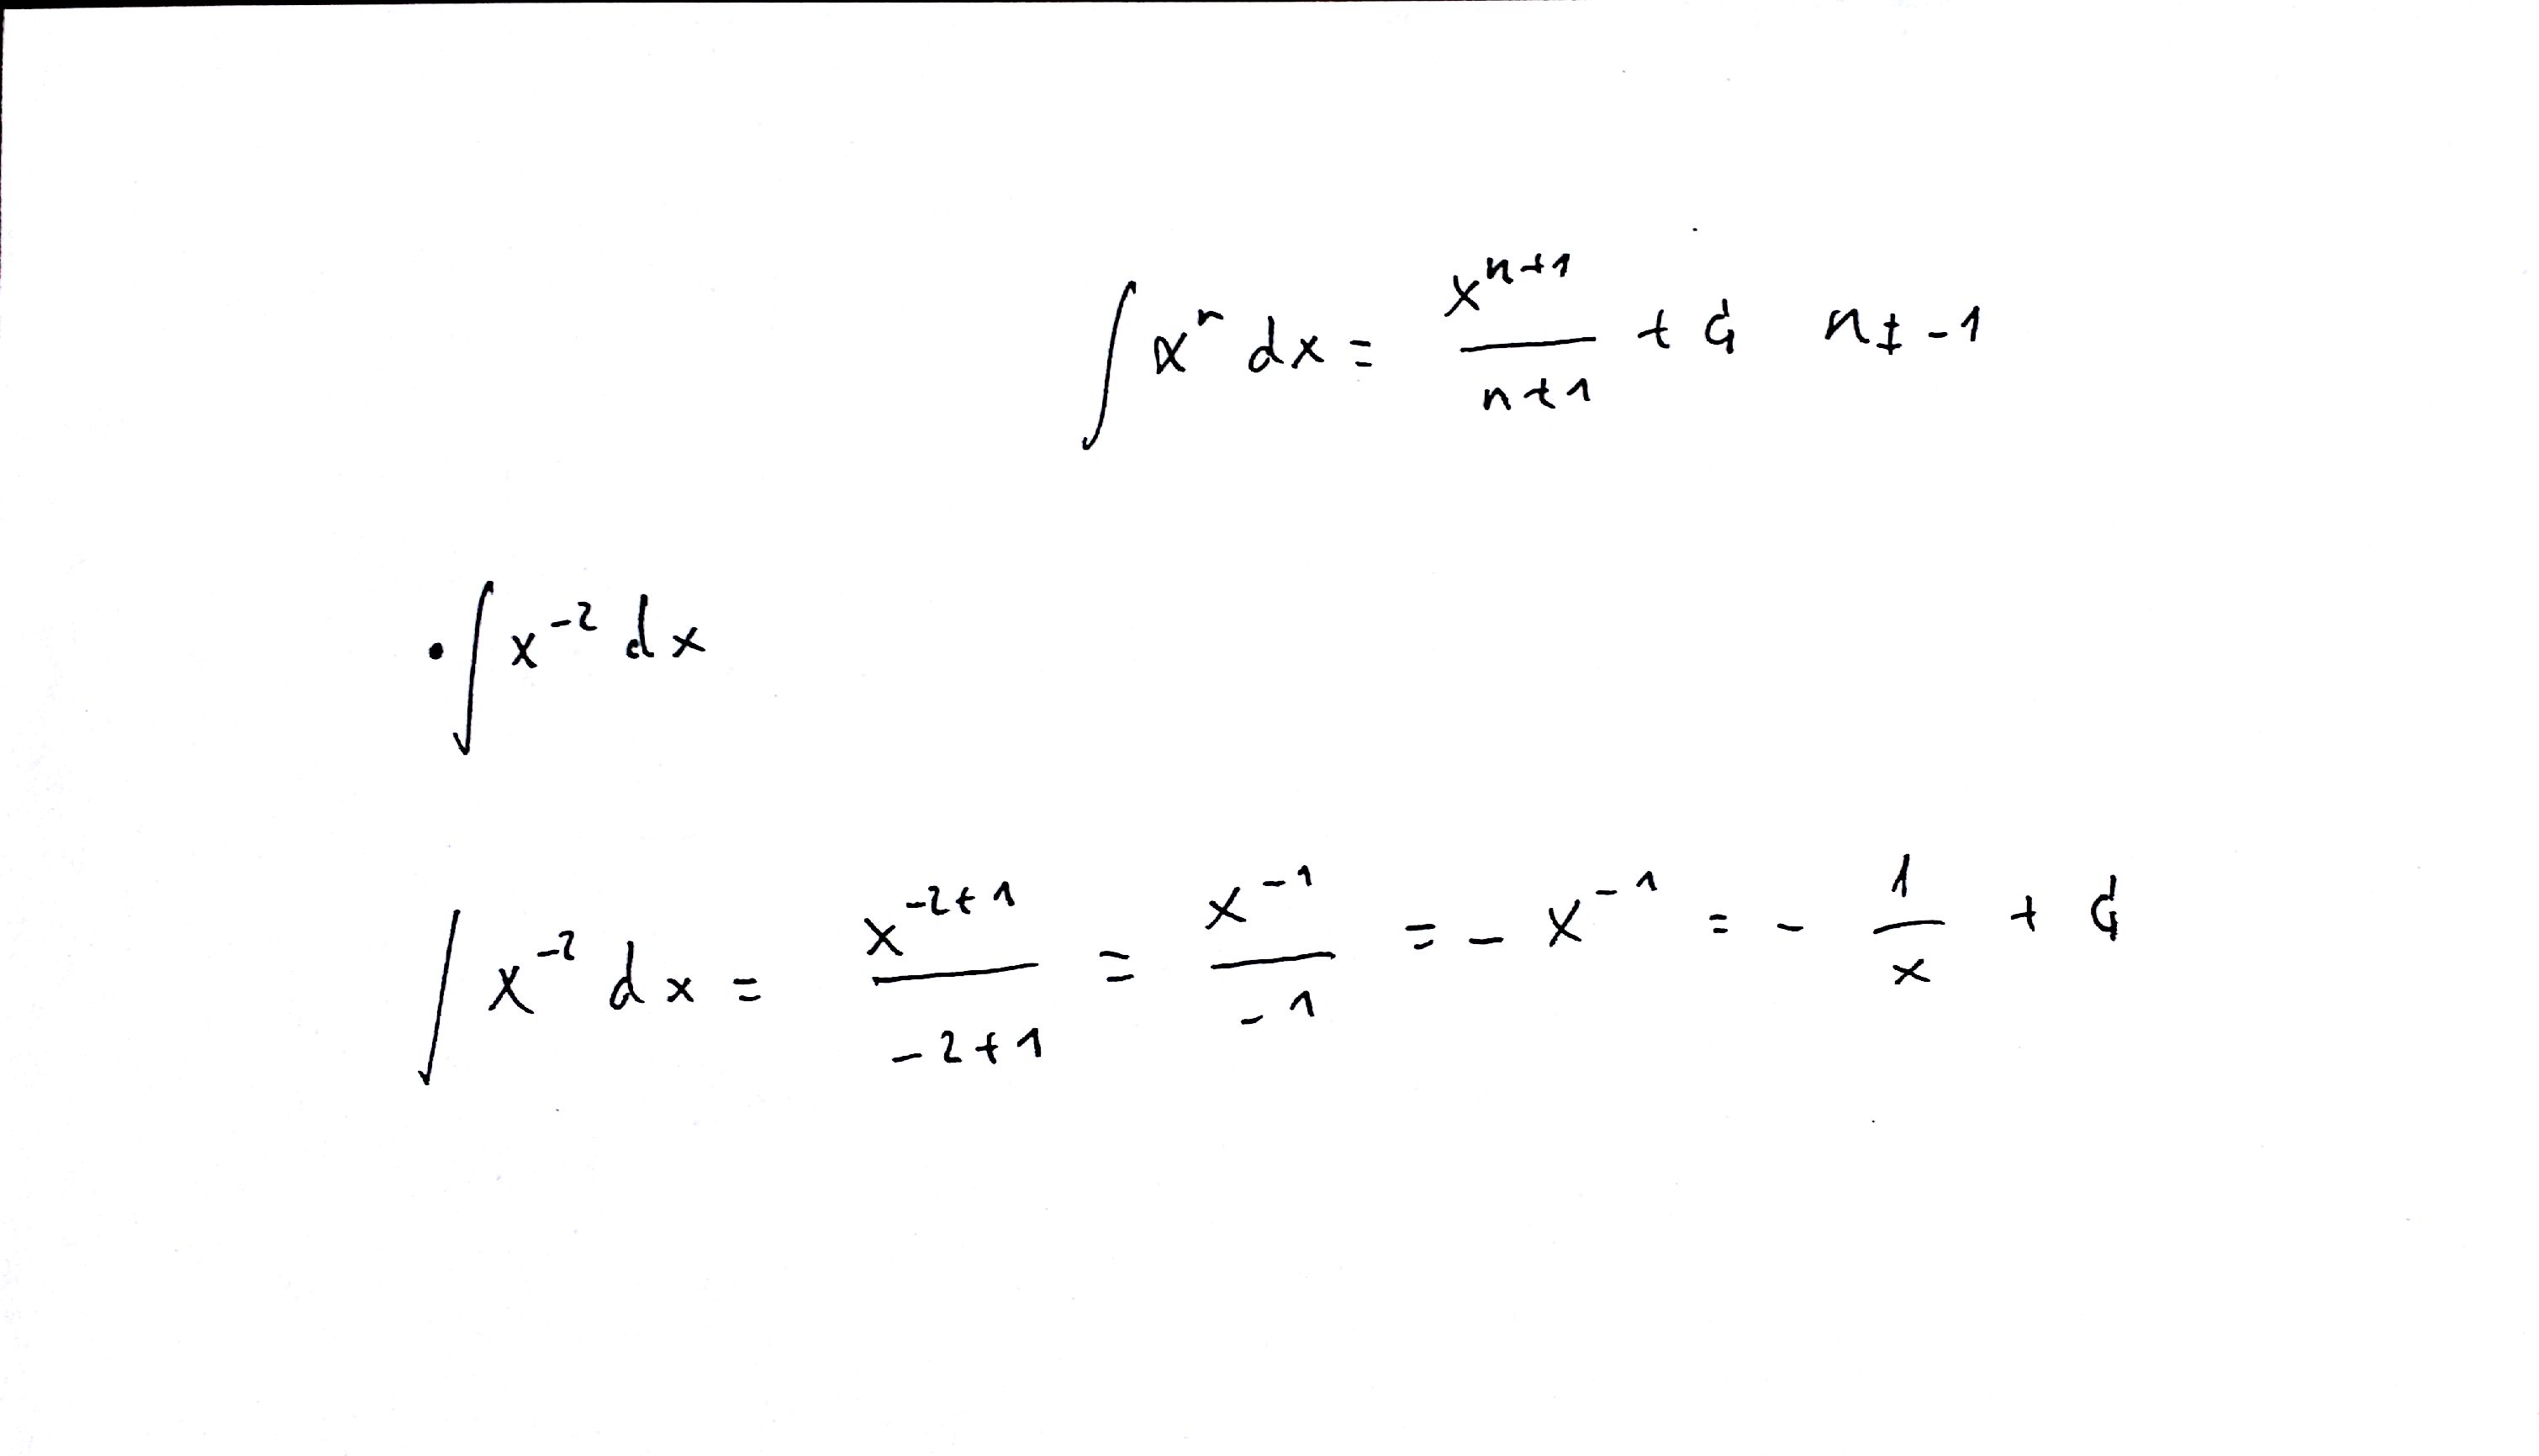 ∫ xⁿ dx = xⁿ⁺¹/(n+1) + C n ≠ -1
• ∫ x⁻² dx
∫ x⁻² dx = x⁻²⁺¹/(-2+1) = x⁻¹/-1 = - x⁻¹ = - 1/x + C